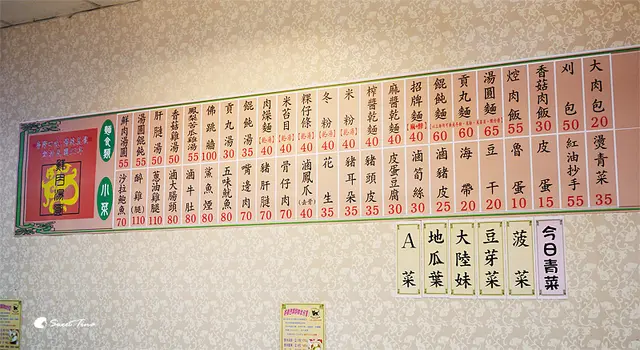 大肉包 20
刈包 50
香菇肉飯 30
焢肉飯 55
湯圓麵 65
貢丸麵 60
餛飩麵 60
招牌麵 40
麻醬乾麵 40
榨醬乾麵 40
米粉 40
冬粉 40
粿仔條 40
米苔目 40
肉燥麵 40
餛飩湯 35
貢丸湯 30
佛跳牆 100
鳳梨苦瓜雞湯 55
香菇雞湯 50
肝腱湯 50
湯圓餛飩 55
鮮肉湯圓 55
麵食類
燙青菜 35
紅油抄手 35
皮蛋 15
魯蛋 10
豆干 20
海帶 20
滷豬皮 20
滷筍絲 30
皮蛋豆腐 30
豬頭皮 35
豬耳朵 35
花生 35
滷鳳爪(去骨) 40
骨仔肉 70
豬肝腱 70
嘴邊肉 70
五味魷魚 80
鯊魚煙 80
滷牛肚 80
滷大腸頭 80
蔥油雞腿 110
醉雞(腿) 110
沙拉鮑魚 70
小菜
鮮肉湯圓
今日青菜
菠菜
豆芽菜
大陸妹
地瓜葉
A菜
Sweet Tina